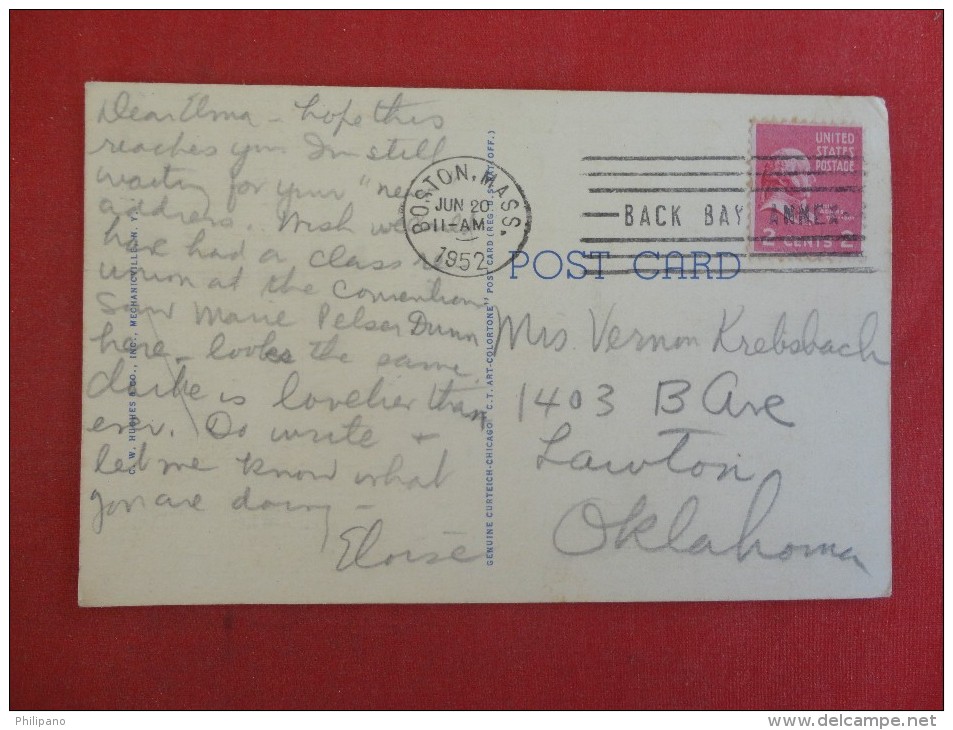 Dear Elma - hope this
reaches you I'm still
waiting for your "new
address. Wish we
have had a class re
union at the convention
Saw Marie Pelser Dunn
here - looks the same,
is lovelier than
ever. Do write +
let me know what
you are doing -
Eloise
C. W. HUGHES & CO., INC., MECHANICVILLE, N. Y.
GENUINE CURTEICH-CHICAGO "C.T. ART-COLORTONE" POST CARD (REG. U.S. PAT. OFF.)
BOSTON, MASS.
JUN 20
11-AM
1952
BACK BAY ANNEX
UNITED
STATES
POSTAGE
2 CENTS 2
POST CARD
Mrs. Vernon Krebsbach
1403 B Ave
Lawton
Oklahoma
Philipano
www.delcampe.net